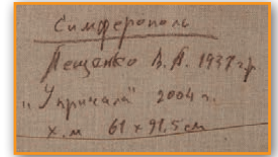 Симферополь
Лещенко В.А. 1937 г.р
„Упричала" 2004 г.
х.м 61 x 91,5 см